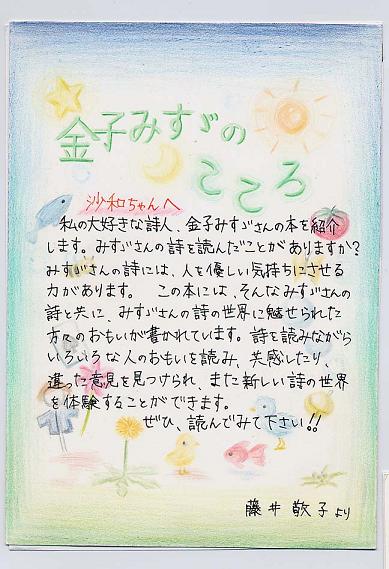 金子みすゞの
こころ
沙和ちゃんへ
私の大好きな詩人、金子みすゞさんの本を紹介
します。みすゞさんの詩を読んだことがありますか?
みすゞさんの詩には、人を優しい気持ちにさせる
力があります。 この本には、そんなみすゞさんの
詩と共に、みすゞさんの詩の世界に魅せられた
方々のおもいが書かれています。詩を読みながら
いろいろな人のおもいを読み、共感したり、
違った意見を見つけられ、また新しい詩の世界
を体験することができます。
ぜひ、読んでみて下さい!!
藤井敬子より